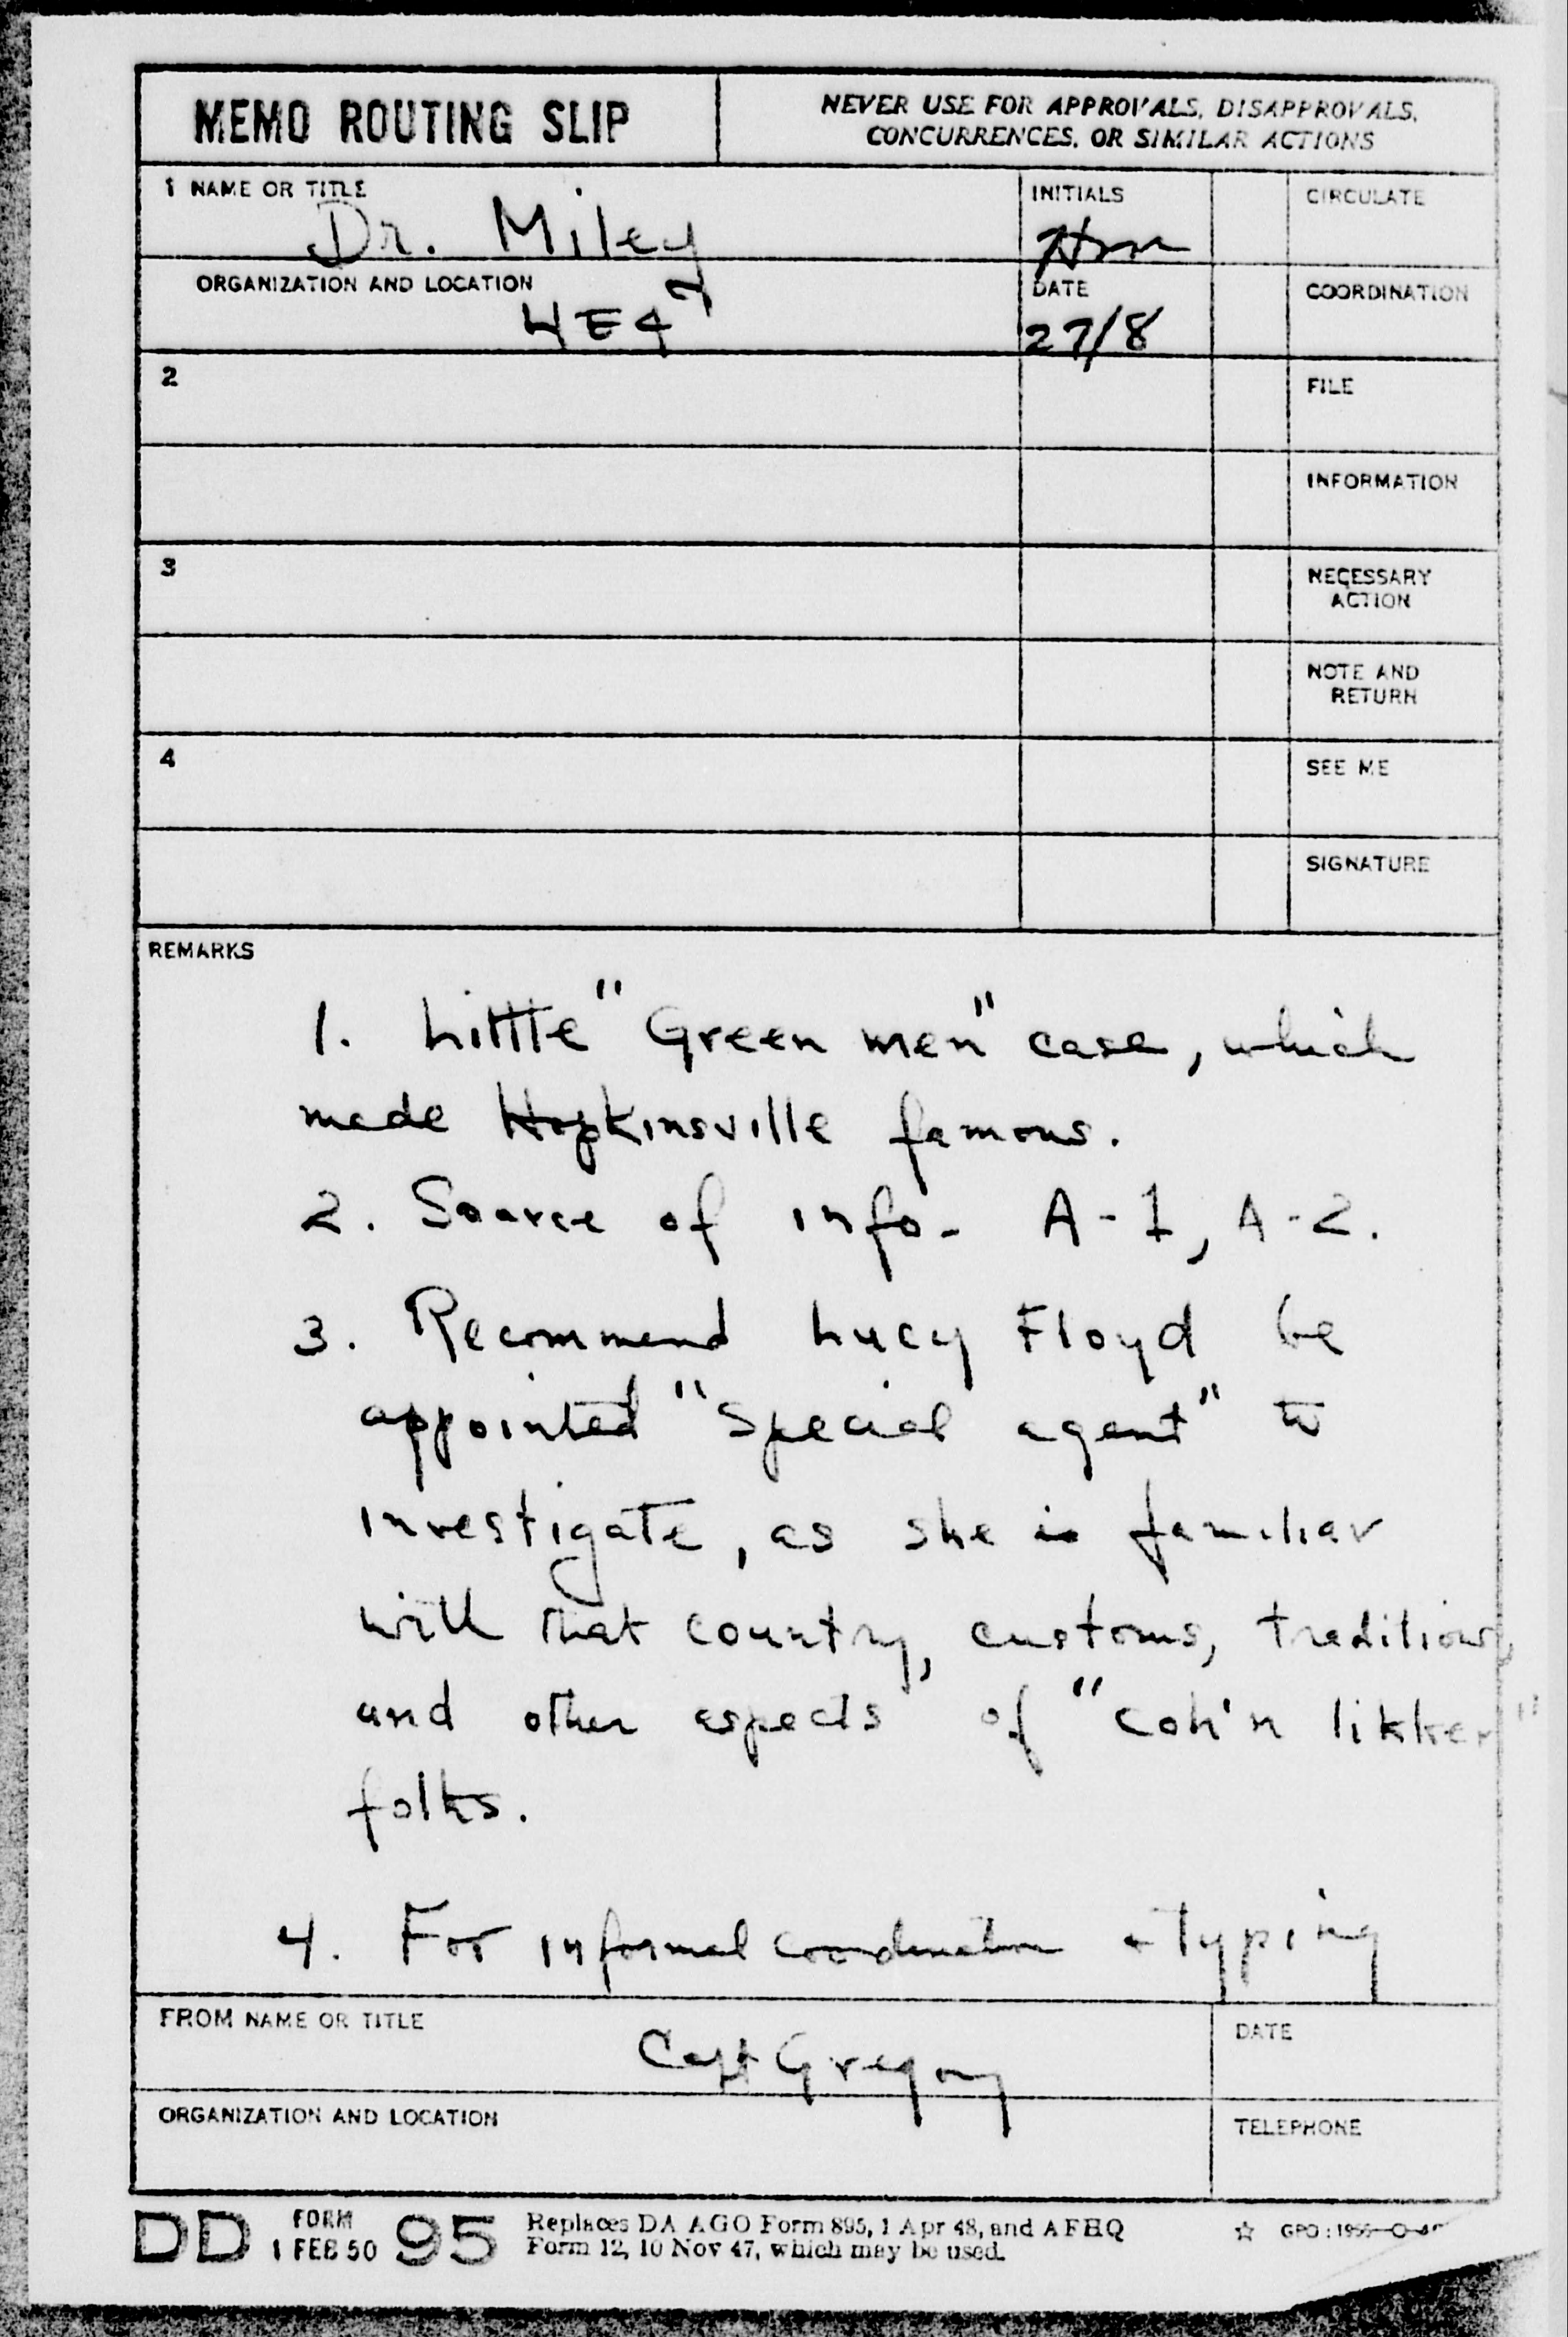 MEMO ROUTING SLIP
NEVER USE FOR APPROVALS, DISAPPROVALS,
CONCURRENCES, OR SIMILAR ACTIONS
1 NAME OR TITLE
Dr. Miley
INITIALS
CIRCULATE
ORGANIZATION AND LOCATION
4E4
DATE
27/8
COORDINATION
2
FILE
INFORMATION
3
NECESSARY
ACTION
NOTE AND
RETURN
4
SEE ME
SIGNATURE
REMARKS
1. Little "Green men" case, which
made Hopkinsville famous.
2. Source of info - A-1, A-2.
3. Recommend Lucy Floyd be
appointed "Special agent" to
investigate, as she is familiar
with that country, customs, traditions,
and other aspects of "coh'n likker"
folks.
4. For informal coordination + typing
FROM NAME OR TITLE
Capt Gregory
DATE
ORGANIZATION AND LOCATION
TELEPHONE
DD FORM 1 FEB 50 95
Replaces DA AGO Form 895, 1 Apr 48, and AFHQ
Form 12, 10 Nov 47, which may be used.
☆ GPO : 1955-O-